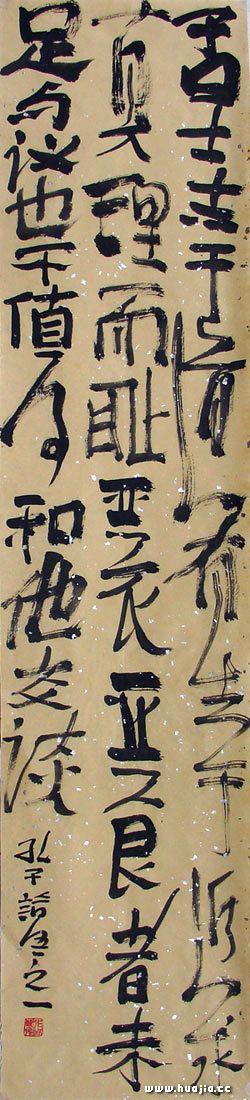 士志于道有志于追求
真理而耻恶衣恶食者未
足与议也不值得和他交谈
孔子语录之一
www.huajia.cc